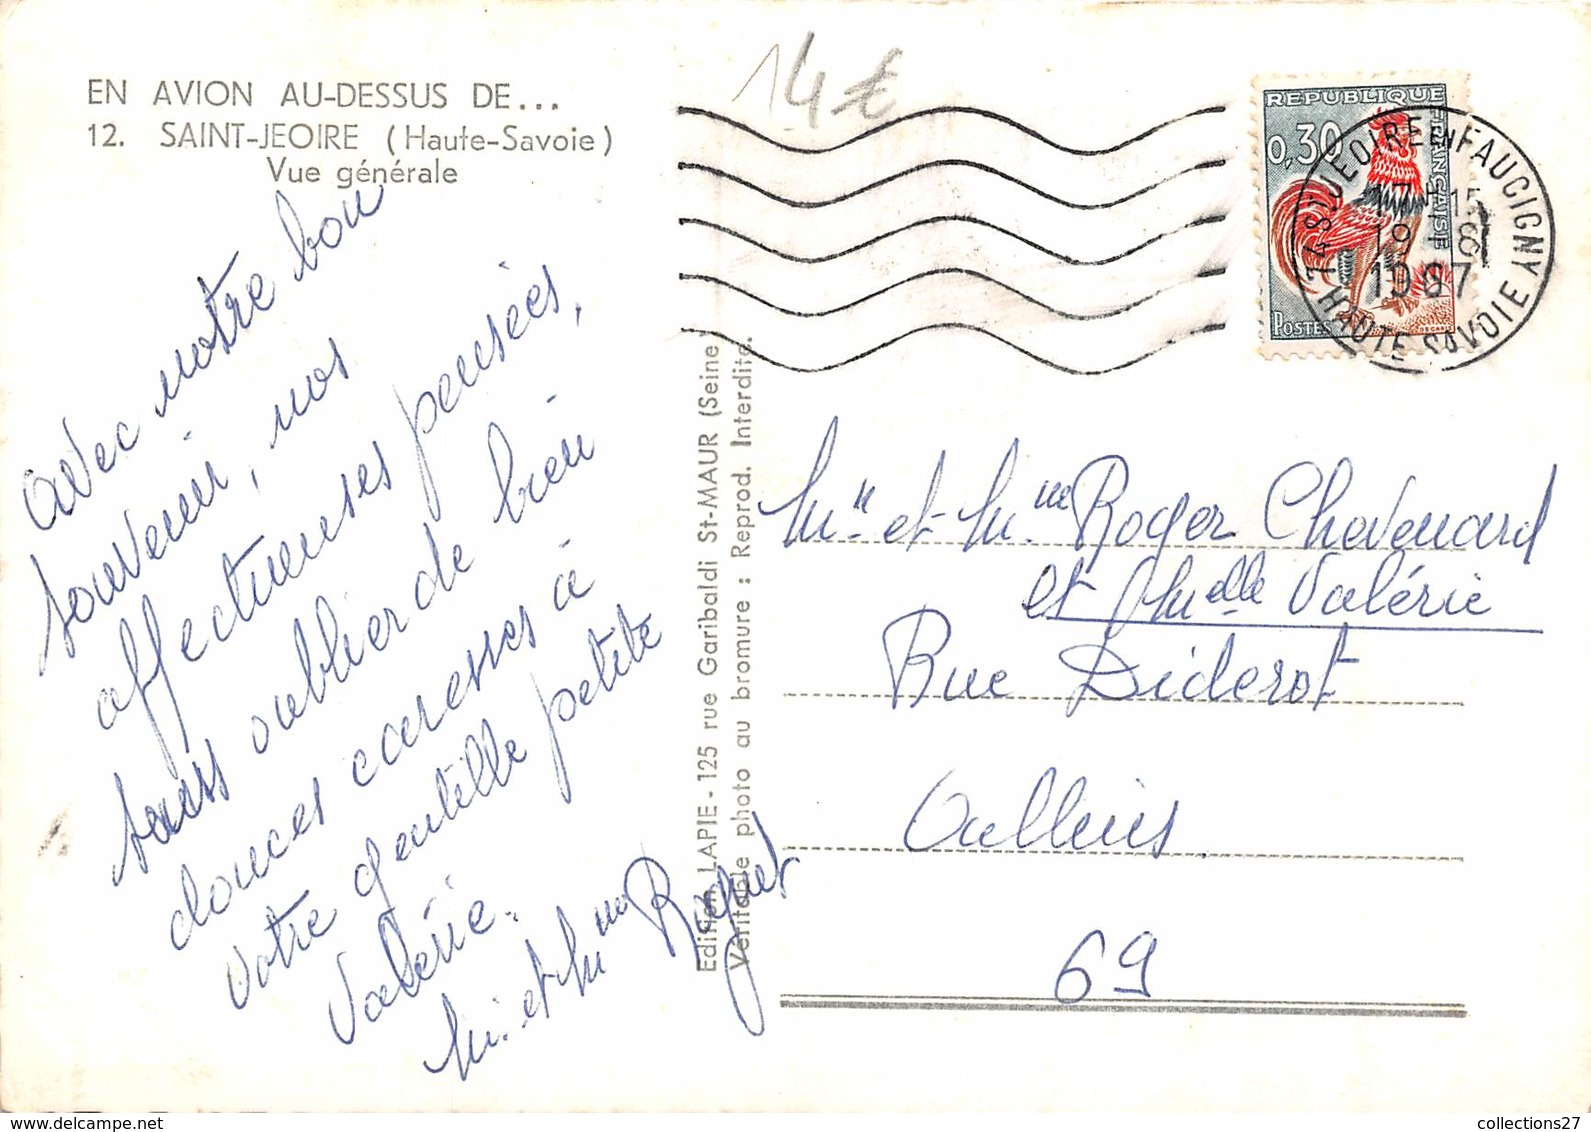 EN AVION AU-DESSUS DE...
12. SAINT-JEOIRE (Haute-Savoie)
Vue générale
14 €
REPUBLIQUE FRANÇAISE
0,30
POSTES
DECARIS
74 ST JEOIRE EN FAUCIGNY
17 H 15
19 - 8
1967
HAUTE SAVOIE
Avec notre bon
souvenir, nos
affectueuses pensées,
sans oublier de bien
douces caresses à
votre gentille petite
Valérie.
Mr et Mme Roguet
Edition LAPIE - 125 rue Garibaldi St-MAUR (Seine)
Véritable photo au bromure : Reprod. Interdite.
Mr et Mme Roger Chavenard
et Melle Valérie
Rue Diderot
Oullins
69
collections27